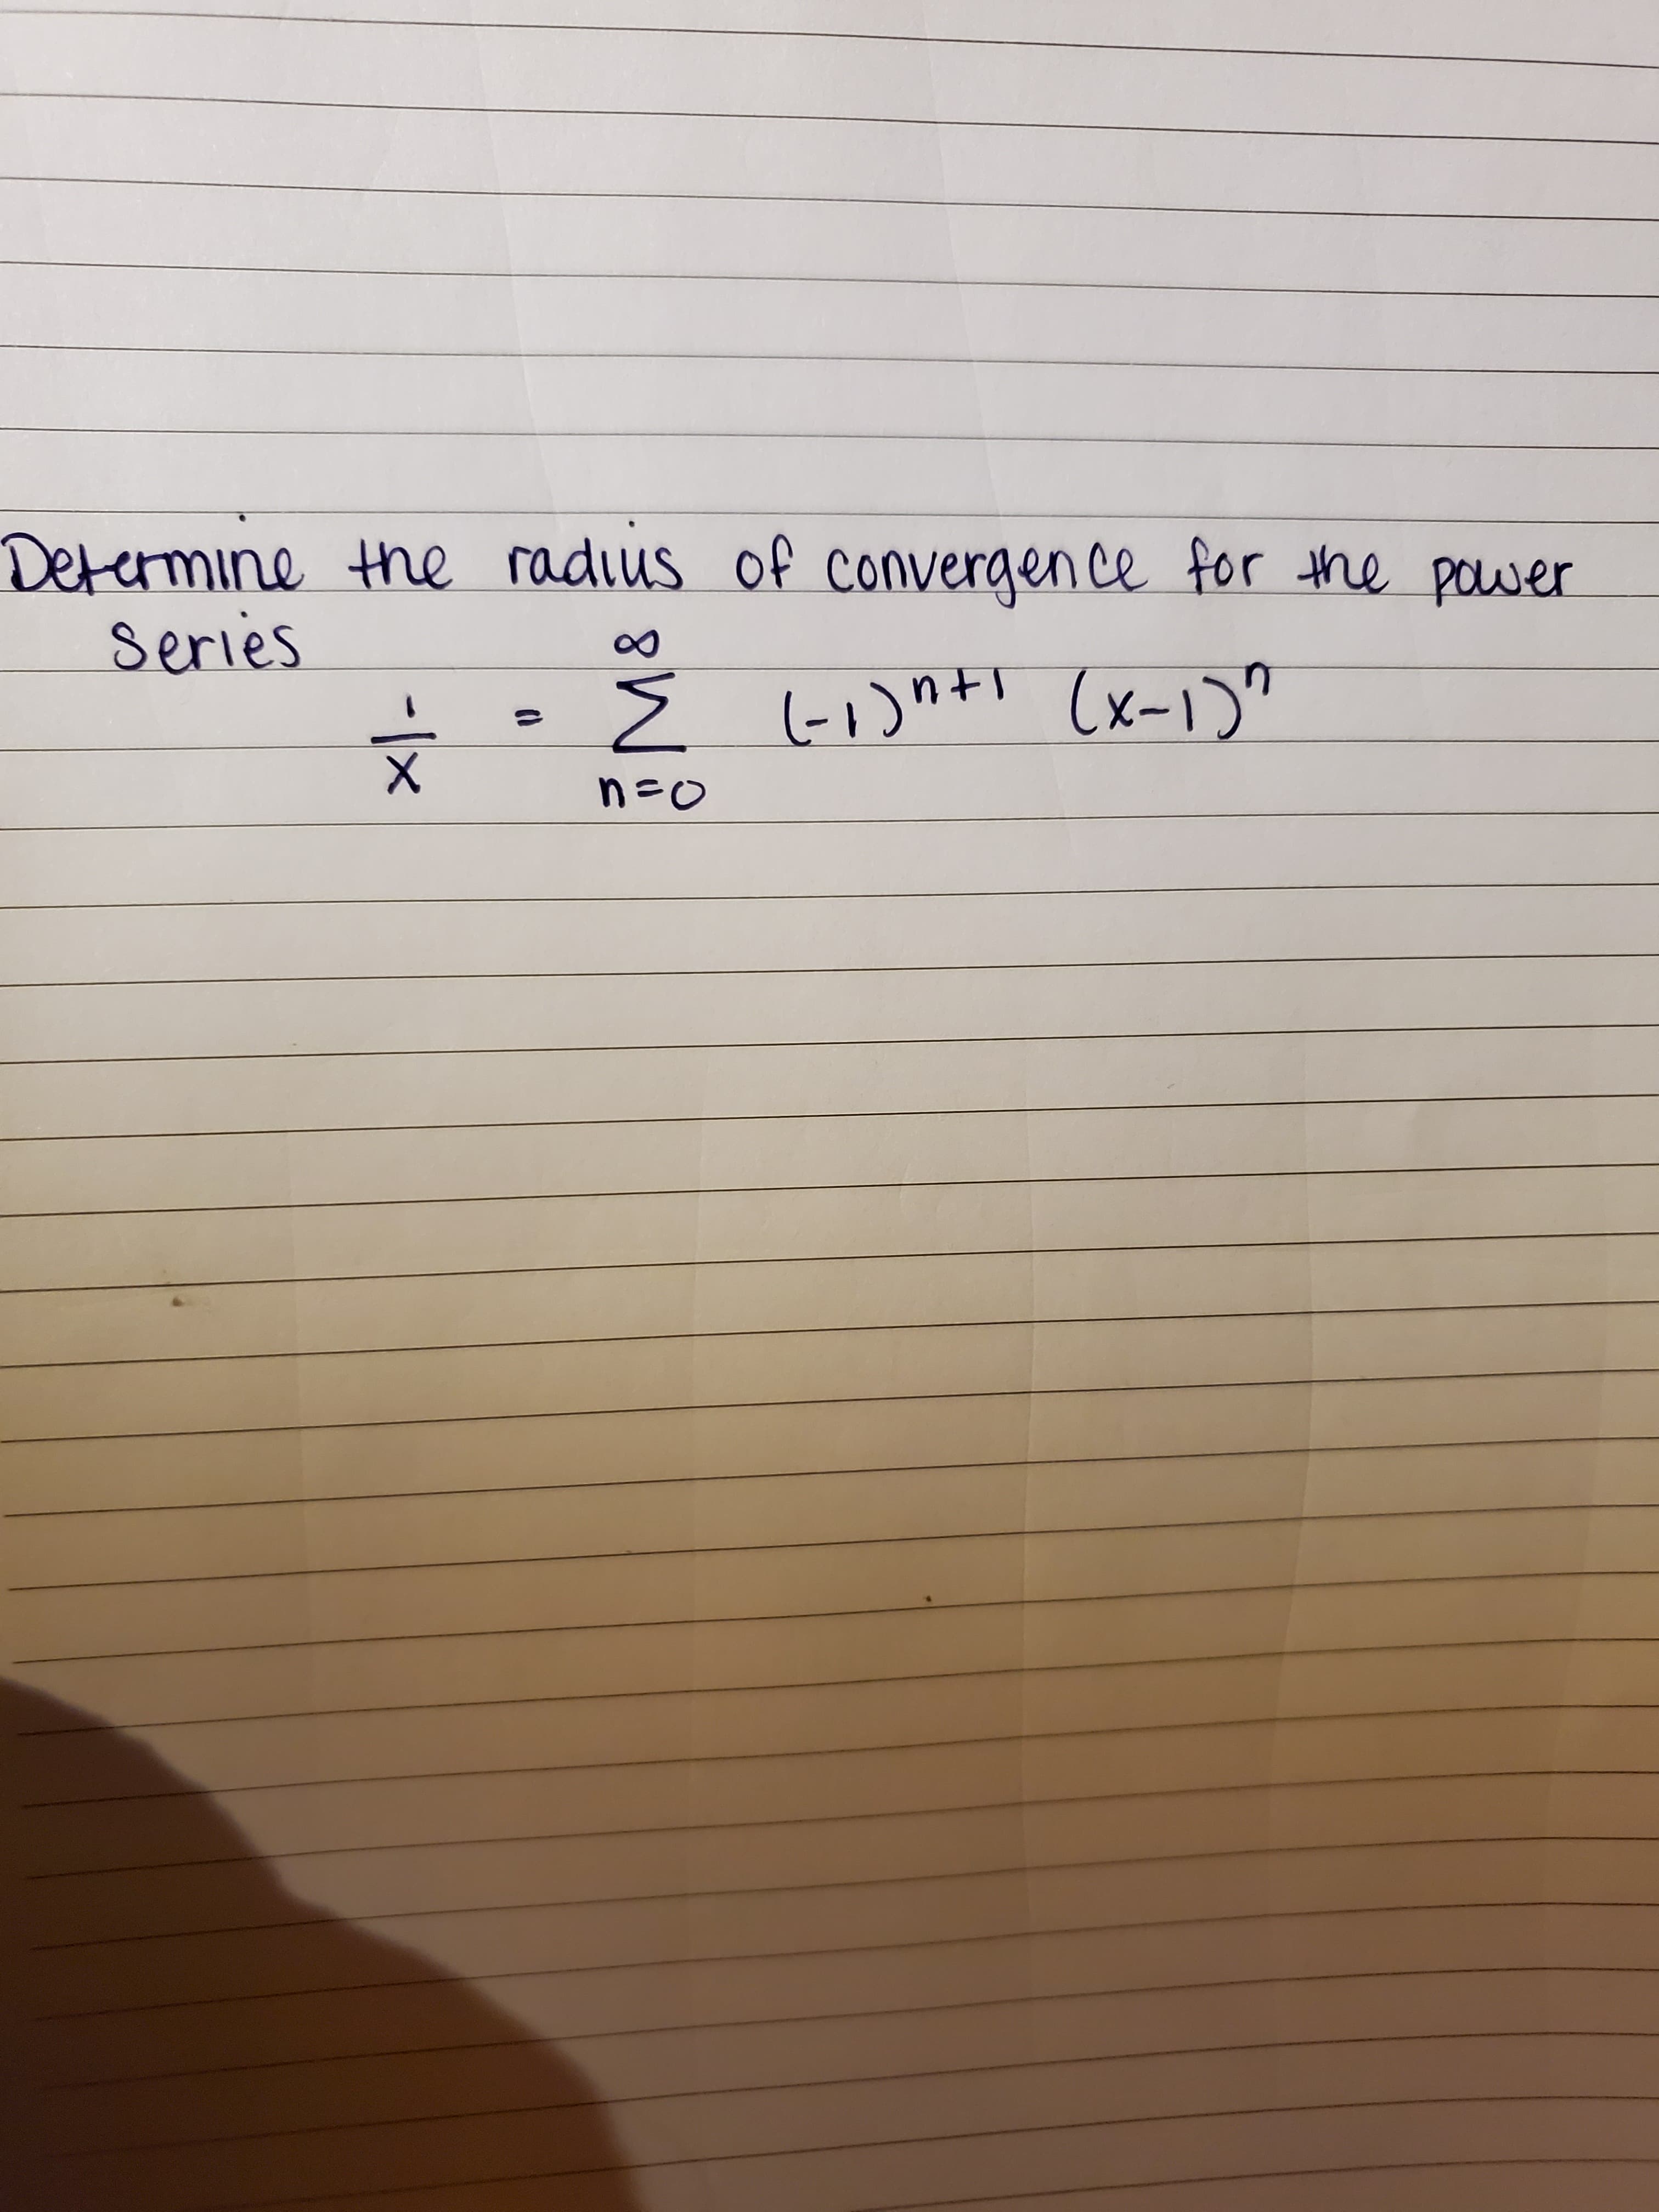 Determine the radius of convergence for the power
series
1/x = ∞ Σ n=0 (-1)^n+1 (x-1)^n